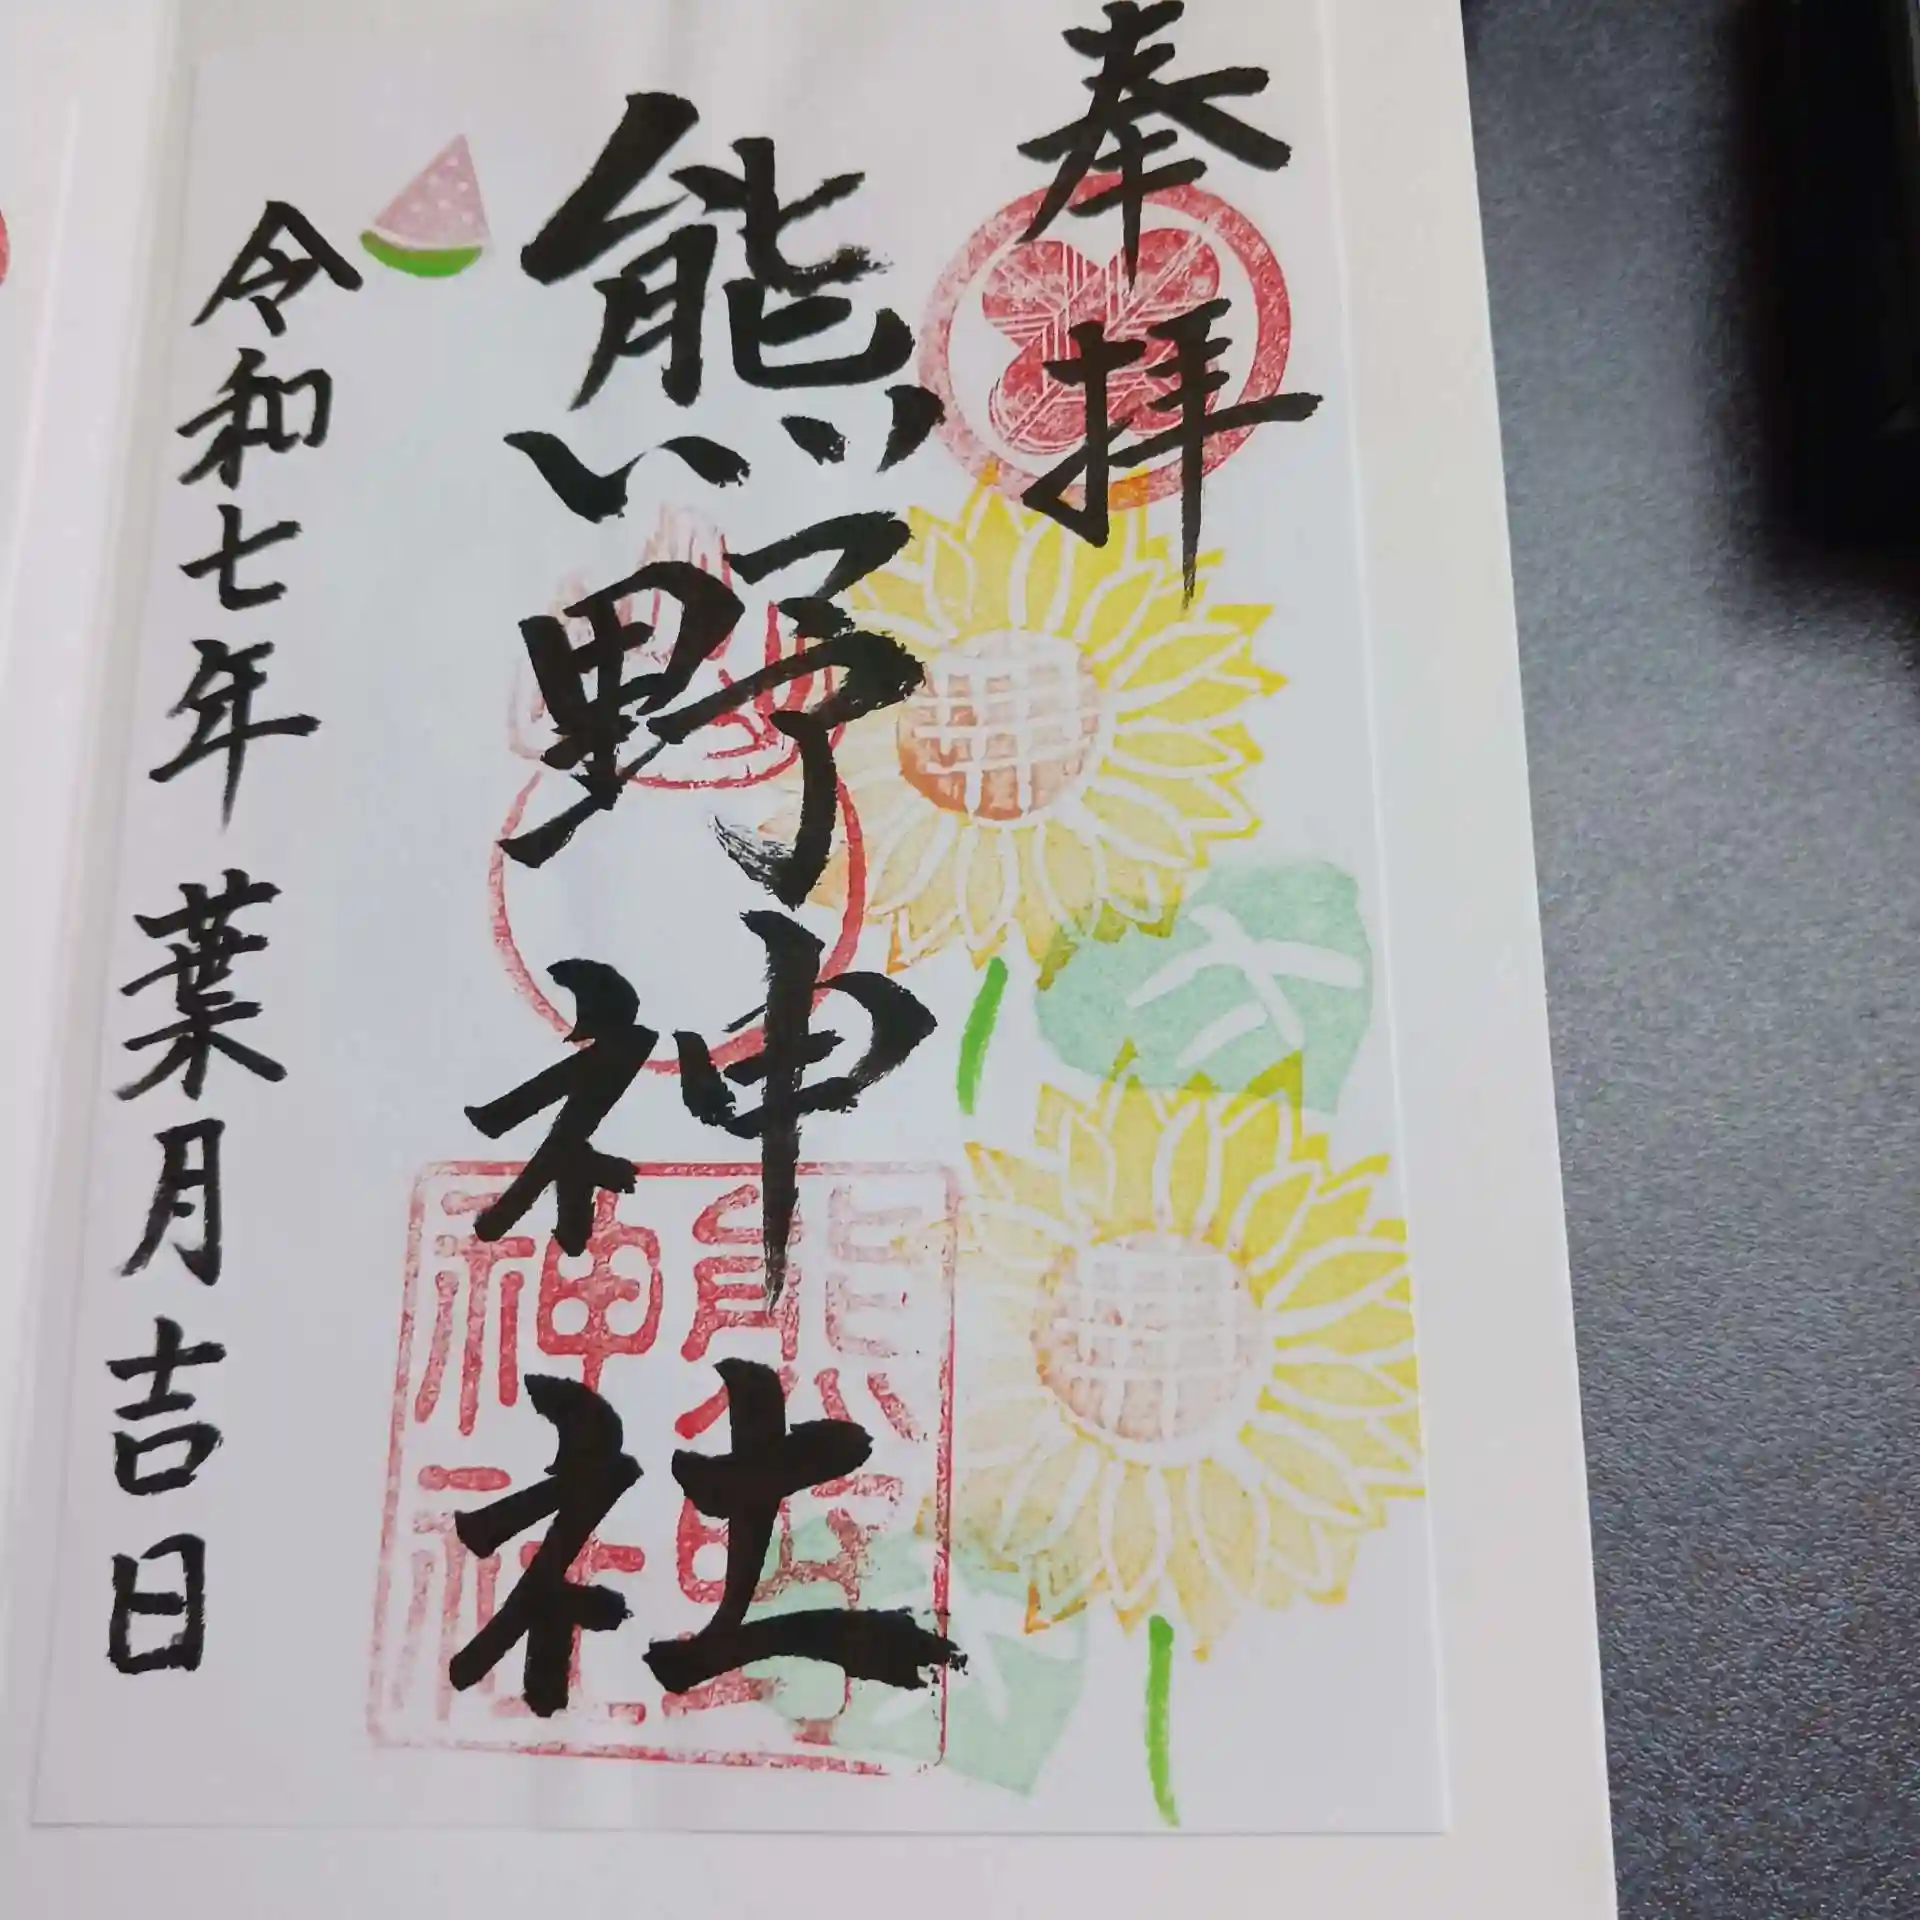 奉拝
熊野神社
熊野
神社
令和七年 葉月吉日